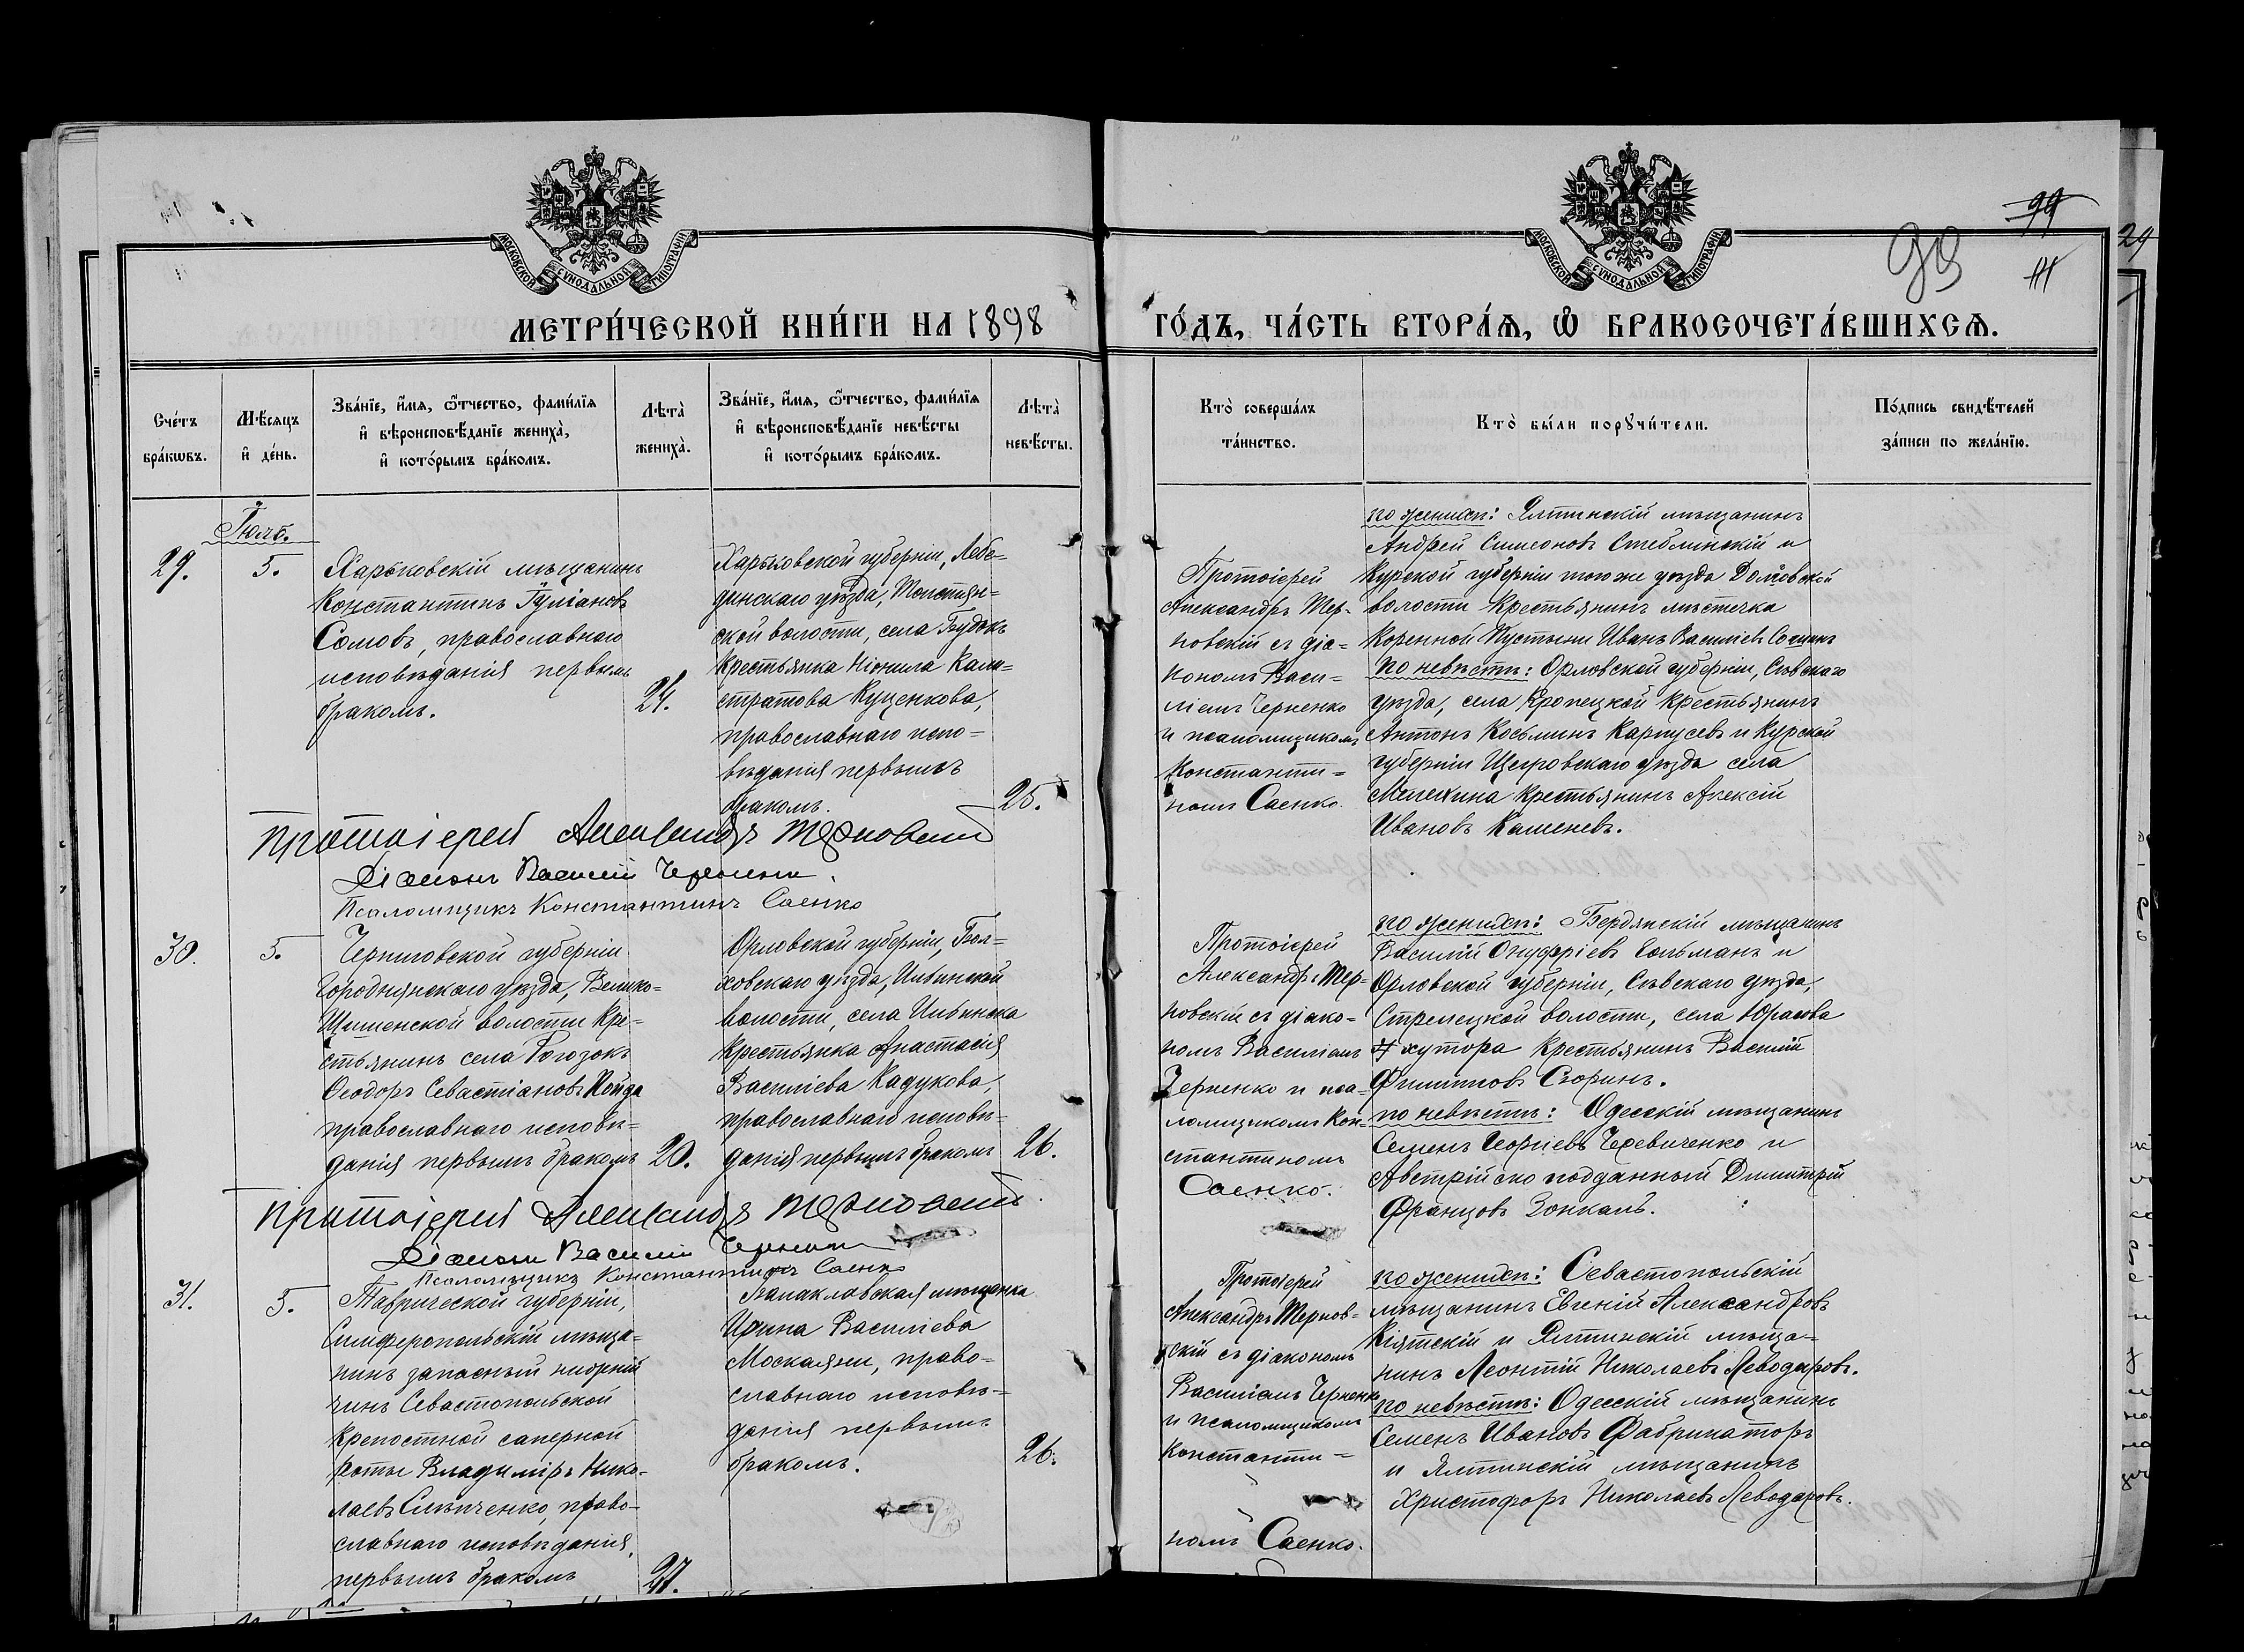 МОСКОВСКОЙ СѴНОДАЛЬНОЙ ТИПОГРАФІИ
МОСКОВСКОЙ СѴНОДАЛЬНОЙ ТИПОГРАФІИ
99
99
111
24
МЕТРИ́ЧЕСКОЙ КНИ́ГИ НА 1898
ГО́ДЪ, ЧА́СТЬ ВТОРА́Ѧ, Ѡ҆ БРАКОСОЧЕТА́ВШИХСѦ.
Сче́тъ
бра́кѡвъ.
Мѣ́сяцъ
и҆ де́нь.
Зва́нїе, и҆́мѧ, ѻ҆́тчество, фами́лїя
и҆ вѣроисповѣ́данїе жениха̀,
и҆ кото́рымъ бра́комъ.
Лѣта̀
жениха̀.
Зва́нїе, и҆́мѧ, ѻ҆́тчество, фами́лїя
и҆ вѣроисповѣ́данїе невѣ́сты
и҆ кото́рымъ бра́комъ.
Лѣта̀
невѣ́сты.
Кто̀ соверша́лъ
та́инство.
Кто̀ бы́ли порꙋчи́тели.
По́дпись свидѣ́телей
за́писи по жела́нїю.
Іюль.
29.
5.
Харьковскій мѣщанинъ
Константинъ Гуліановъ
Сомовъ, православнаго
исповѣданія первымъ
бракомъ.
24.
Харьковской губерніи, Лебе-
динскаго уѣзда,
ской волости, села Будокъ
крестьянка Ніонила Кали-
стратова Куценкова,
православнаго испо-
вѣданія первымъ
бракомъ.
25.
Протоіерей
Александръ Тер-
новскій съ діа-
кономъ Васи-
ліемъ Черненко
и псаломщикомъ
Константи-
номъ Саенко.
по женихѣ: Ялтинскій мѣщанинъ
Андрей Симеоновъ Стеблинскій и
Курской губерніи тогоже уѣзда
волости крестьянинъ мѣстечка
Коренной Пустыни Иванъ Василіевъ
по невѣстѣ: Орловской губерніи, Сѣвскаго
уѣзда, села Кропецкой крестьянинъ
Антонъ Косьминъ Карпусевъ и Курской
губерніи Щигровскаго уѣзда села
Мелехина крестьянинъ Алексій
Ивановъ Каменевъ.
Протоіерей Александръ Терновскій
Діаконъ Василій Черненко.
Псаломщикъ Константинъ Саенко
30.
5.
Черниговской губерніи
Городнянскаго уѣзда, Велико-
Щименской волости кре-
стьянинъ села Рогозокъ
Ѳеодоръ Севастіановъ Койда
православнаго исповѣ-
данія первымъ бракомъ
20.
Орловской губерніи, Бол-
ховскаго уѣзда, Ильинской
волости, села Ильинска
крестьянка Анастасія
Василіева Кадукова,
православнаго исповѣ-
данія первымъ бракомъ
26.
Протоіерей
Александръ Тер-
новскій съ діако-
номъ Василіемъ
Черненко и пса-
ломщикомъ Кон-
стантиномъ
Саенко.
по женихѣ: Бердянскій мѣщанинъ
Василій Онуфріевъ Гольманъ и
Орловской губерніи, Сѣвскаго уѣзда,
Стрелецкой волости, села Юрасова
хутора крестьянинъ Василій
Филипповъ Своринъ.
по невѣстѣ: Одесскій мѣщанинъ
Семенъ Георгіевъ Черевиченко и
Австрійско подданный Димитрій
Францовъ Зонкалъ.
Протоіерей Александръ Терновскій.
Діаконъ Василій Черненко
Псаломщикъ Константинъ Саенко
31.
5.
Таврической губерніи,
Симферопольскій мѣща-
нинъ запасный нижній
чинъ Севастопольской
крепостной саперной
роты Владиміръ Нико-
лаевъ Слѣпченко, право-
славнаго исповѣданія,
первымъ бракомъ
27.
Балаклавская мѣщанка
Ирина Василіева
Москаяни, право-
славнаго исповѣ-
данія первымъ
бракомъ.
26.
Протоіерей
Александръ Тернов-
скій съ діакономъ
Василіемъ Черненко
и псаломщикомъ
Константи-
номъ Саенко.
по женихѣ: Севастопольскій
мѣщанинъ Евгеній Александровъ
Кіятскій и Ялтинскій мѣща-
нинъ Леонтій Николаевъ Леводаровъ.
по невѣстѣ: Одесскій мѣщанинъ
Семенъ Ивановъ Фабрикаторъ
и Ялтинскій мѣщанинъ
Христофоръ Николаевъ Леводаровъ.